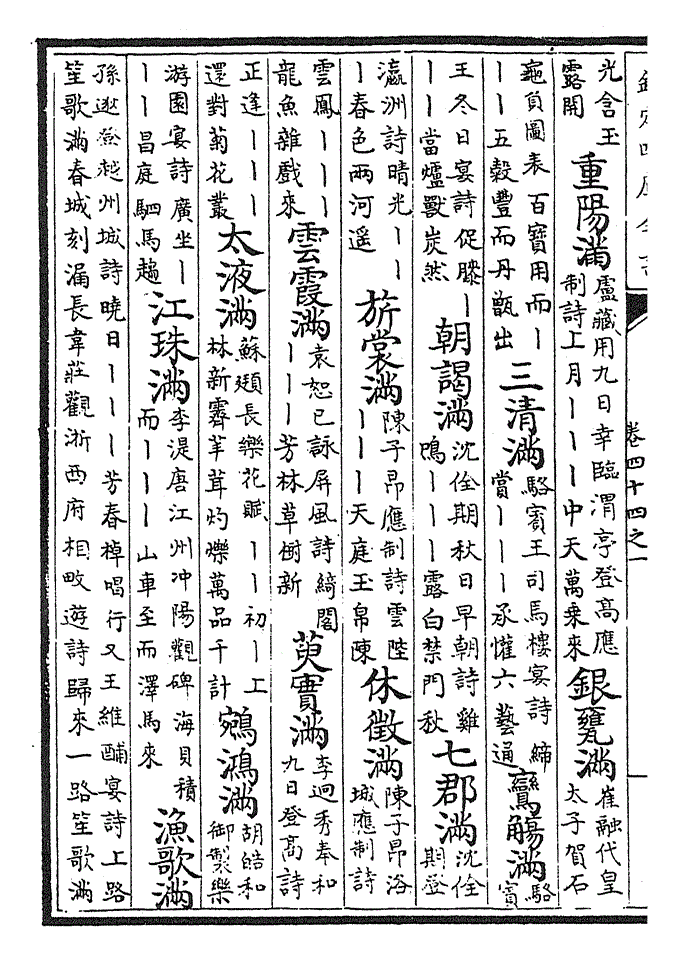 欽定四庫全書
卷四十四之一
光含玉
露開
重陽滿
盧藏用九日幸臨渭亭登高應
制詩上月丨丨丨中天萬乗來
銀甕滿
崔融代皇
太子賀石
龜負圖表百寶用而丨
丨丨五穀豐而丹甑出
三清滿
駱賓王司馬樓宴詩締
賞丨丨丨承懽六藝通
鸞觴滿
駱
賓
王冬日宴詩促膝丨
丨丨當爐獸炭然
朝謁滿
沈佺期秋日早朝詩雞
鳴丨丨丨露白禁門秋
七郡滿
沈佺
期登
瀛洲詩晴光丨丨
丨春色兩河遥
旂裳滿
陳子昂應制詩雲陛
丨丨丨天庭玉帛陳
休徵滿
陳子昂洛
城應制詩
雲鳳丨丨丨
龍魚雜戲來
雲霞滿
袁恕己詠屏風詩綺閣
丨丨丨芳林草樹新
萸實滿
李迥秀奉和
九日登高詩
正逢丨丨丨
還對菊花叢
太液滿
蘇頲長樂花賦丨丨初丨上
林新霽芊茸灼爍萬品千計
鵷鴻滿
胡皓和
御製樂
游園宴詩廣坐丨
丨丨昌庭駟馬趨
江珠滿
李湜唐江州冲陽觀碑海貝積
而丨丨丨山車至而澤馬來
漁歌滿
孫逖登越州城詩曉日丨丨丨芳春棹唱行又王維酺宴詩上路
笙歌滿春城刻漏長韋莊觀浙西府相畋遊詩歸來一路笙歌滿